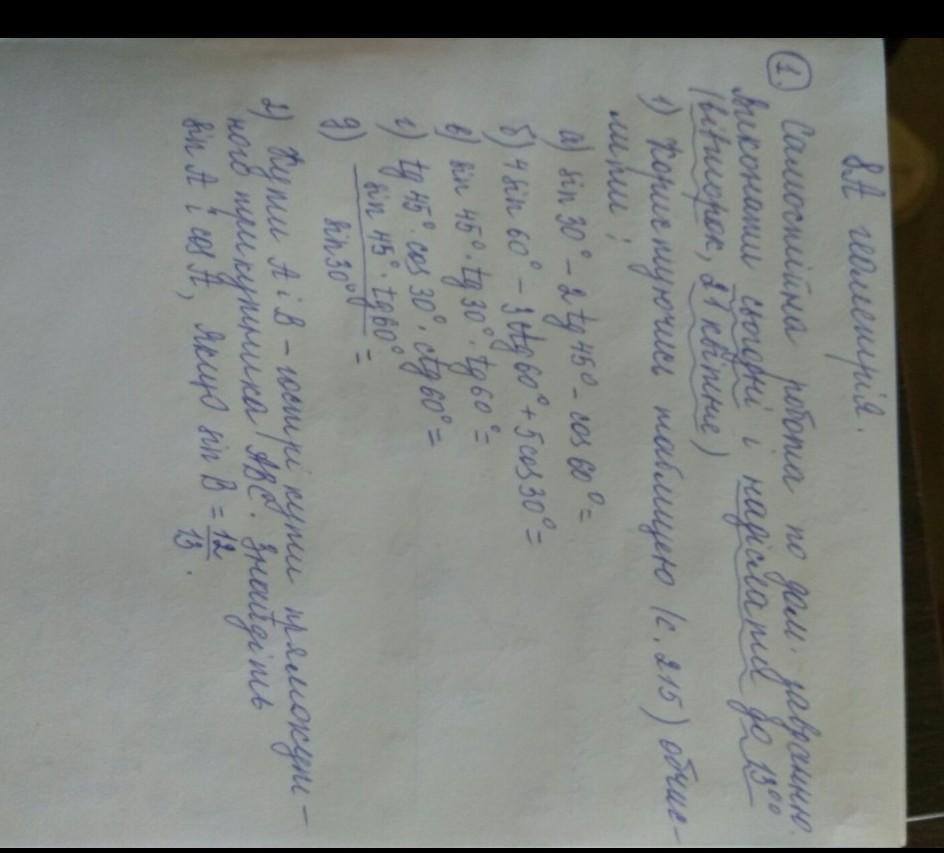 8А геометрія.
1. Самостійна робота по дом. завданню.
Виконати сьогодні і надіслати до 13⁰⁰
(вівторок, 21 квітня)
1) Користуючись таблицею (с. 215) обчис-
лити:
а) sin 30° - 2 tg 45° - cos 60° =
б) 4 sin 60° - 3 tg 60° + 5 cos 30° =
в) sin 45° · tg 30° · tg 60° =
г) tg 45° · cos 30° · ctg 60° =
д) sin 45° · tg 60° / sin 30° =
2) Кути А і В - гострі кути прямокут-
ного трикутника АВС. Знайдіть
sin A і cos A, якщо sin B = 12/13.